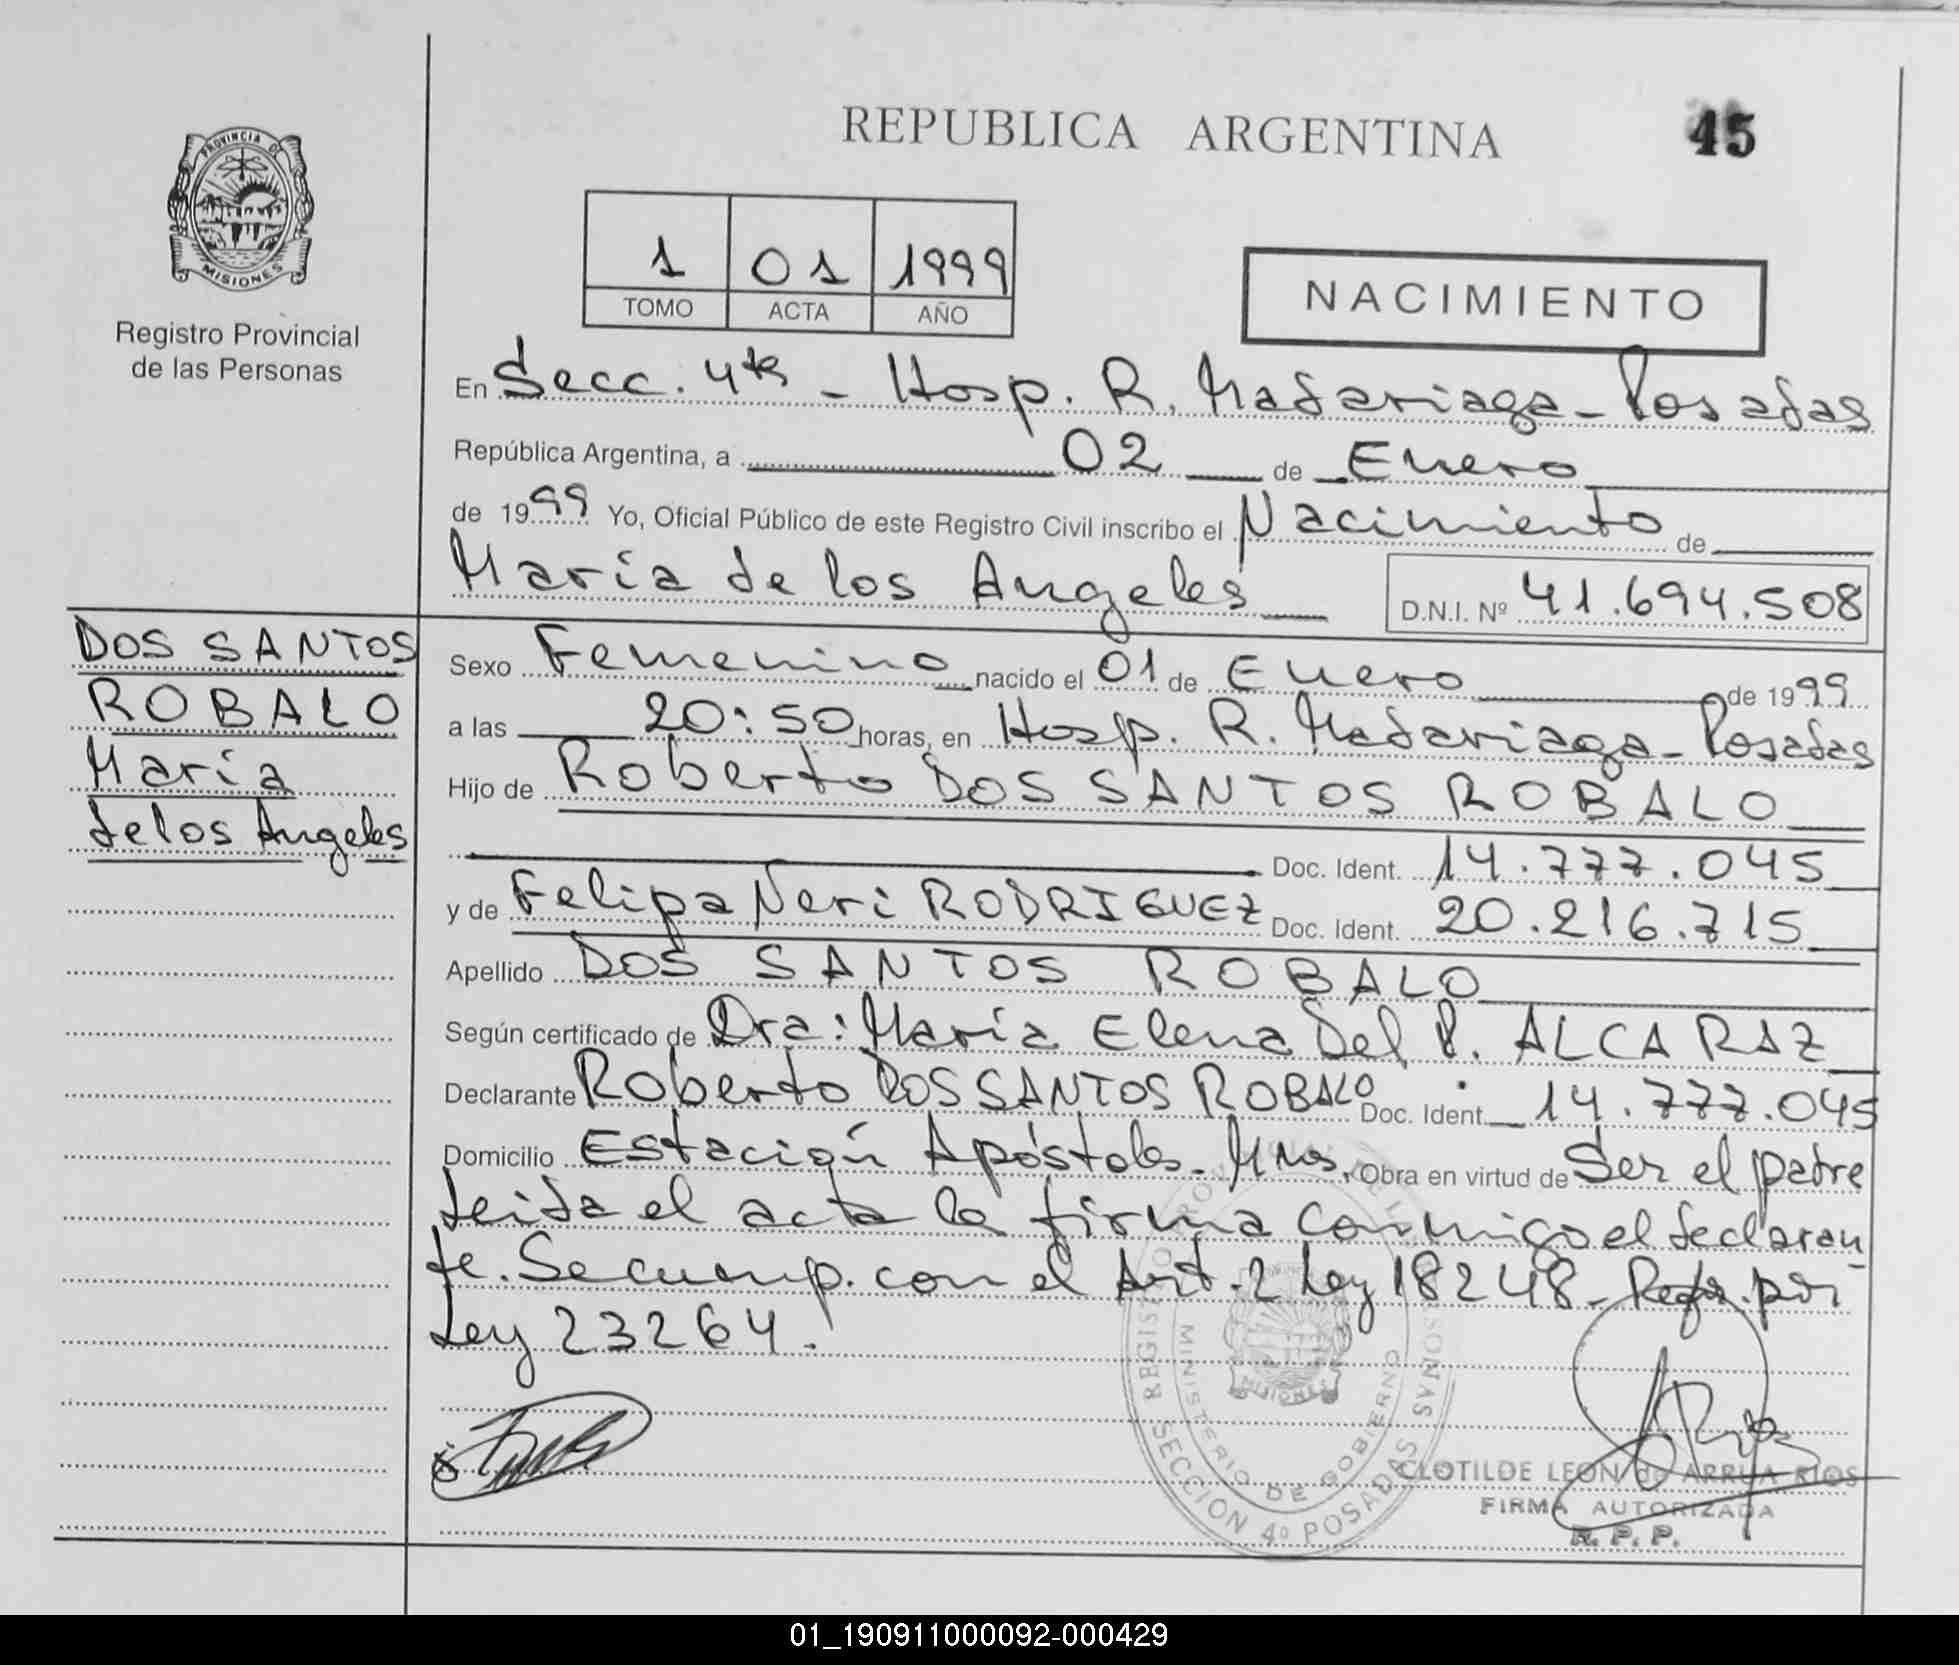 REPUBLICA ARGENTINA
45
PROVINCIA DE
MISIONES
Registro Provincial
de las Personas
1 01 1999
TOMO ACTA AÑO
NACIMIENTO
En Secc. 4ta - Hosp. R. Madariaga - Posadas
República Argentina, a 02 de Enero
de 1999 Yo, Oficial Público de este Registro Civil inscribo el Nacimiento de
María de los Angeles D.N.I. Nº 41.694.508
DOS SANTOS
ROBALO
María
de los Angeles
Sexo Femenino nacido el 01 de Enero de 1999
a las 20:50 horas, en Hosp. R. Madariaga - Posadas
Hijo de Roberto DOS SANTOS ROBALO
Doc. Ident. 14.777.045
y de Felipa Neri RODRIGUEZ Doc. Ident. 20.216.715
Apellido DOS SANTOS ROBALO
Según certificado de Dra: María Elena Del P. ALCARAZ
Declarante Roberto DOS SANTOS ROBALO Doc. Ident. 14.777.045
Domicilio Estación Apóstoles - Mnes. Obra en virtud de Ser el padre
Leida el acta la firma conmigo el declaran
te. Se cump. con el Art. 2 Ley 18248 - Refor. por
Ley 23264.
MINISTERIO DE GOBIERNO
SECCION 4º POSADAS
MISIONES
CLOTILDE LEON de ARRUA RIOS
FIRMA AUTORIZADA
R. P. P.
01_190911000092-000429